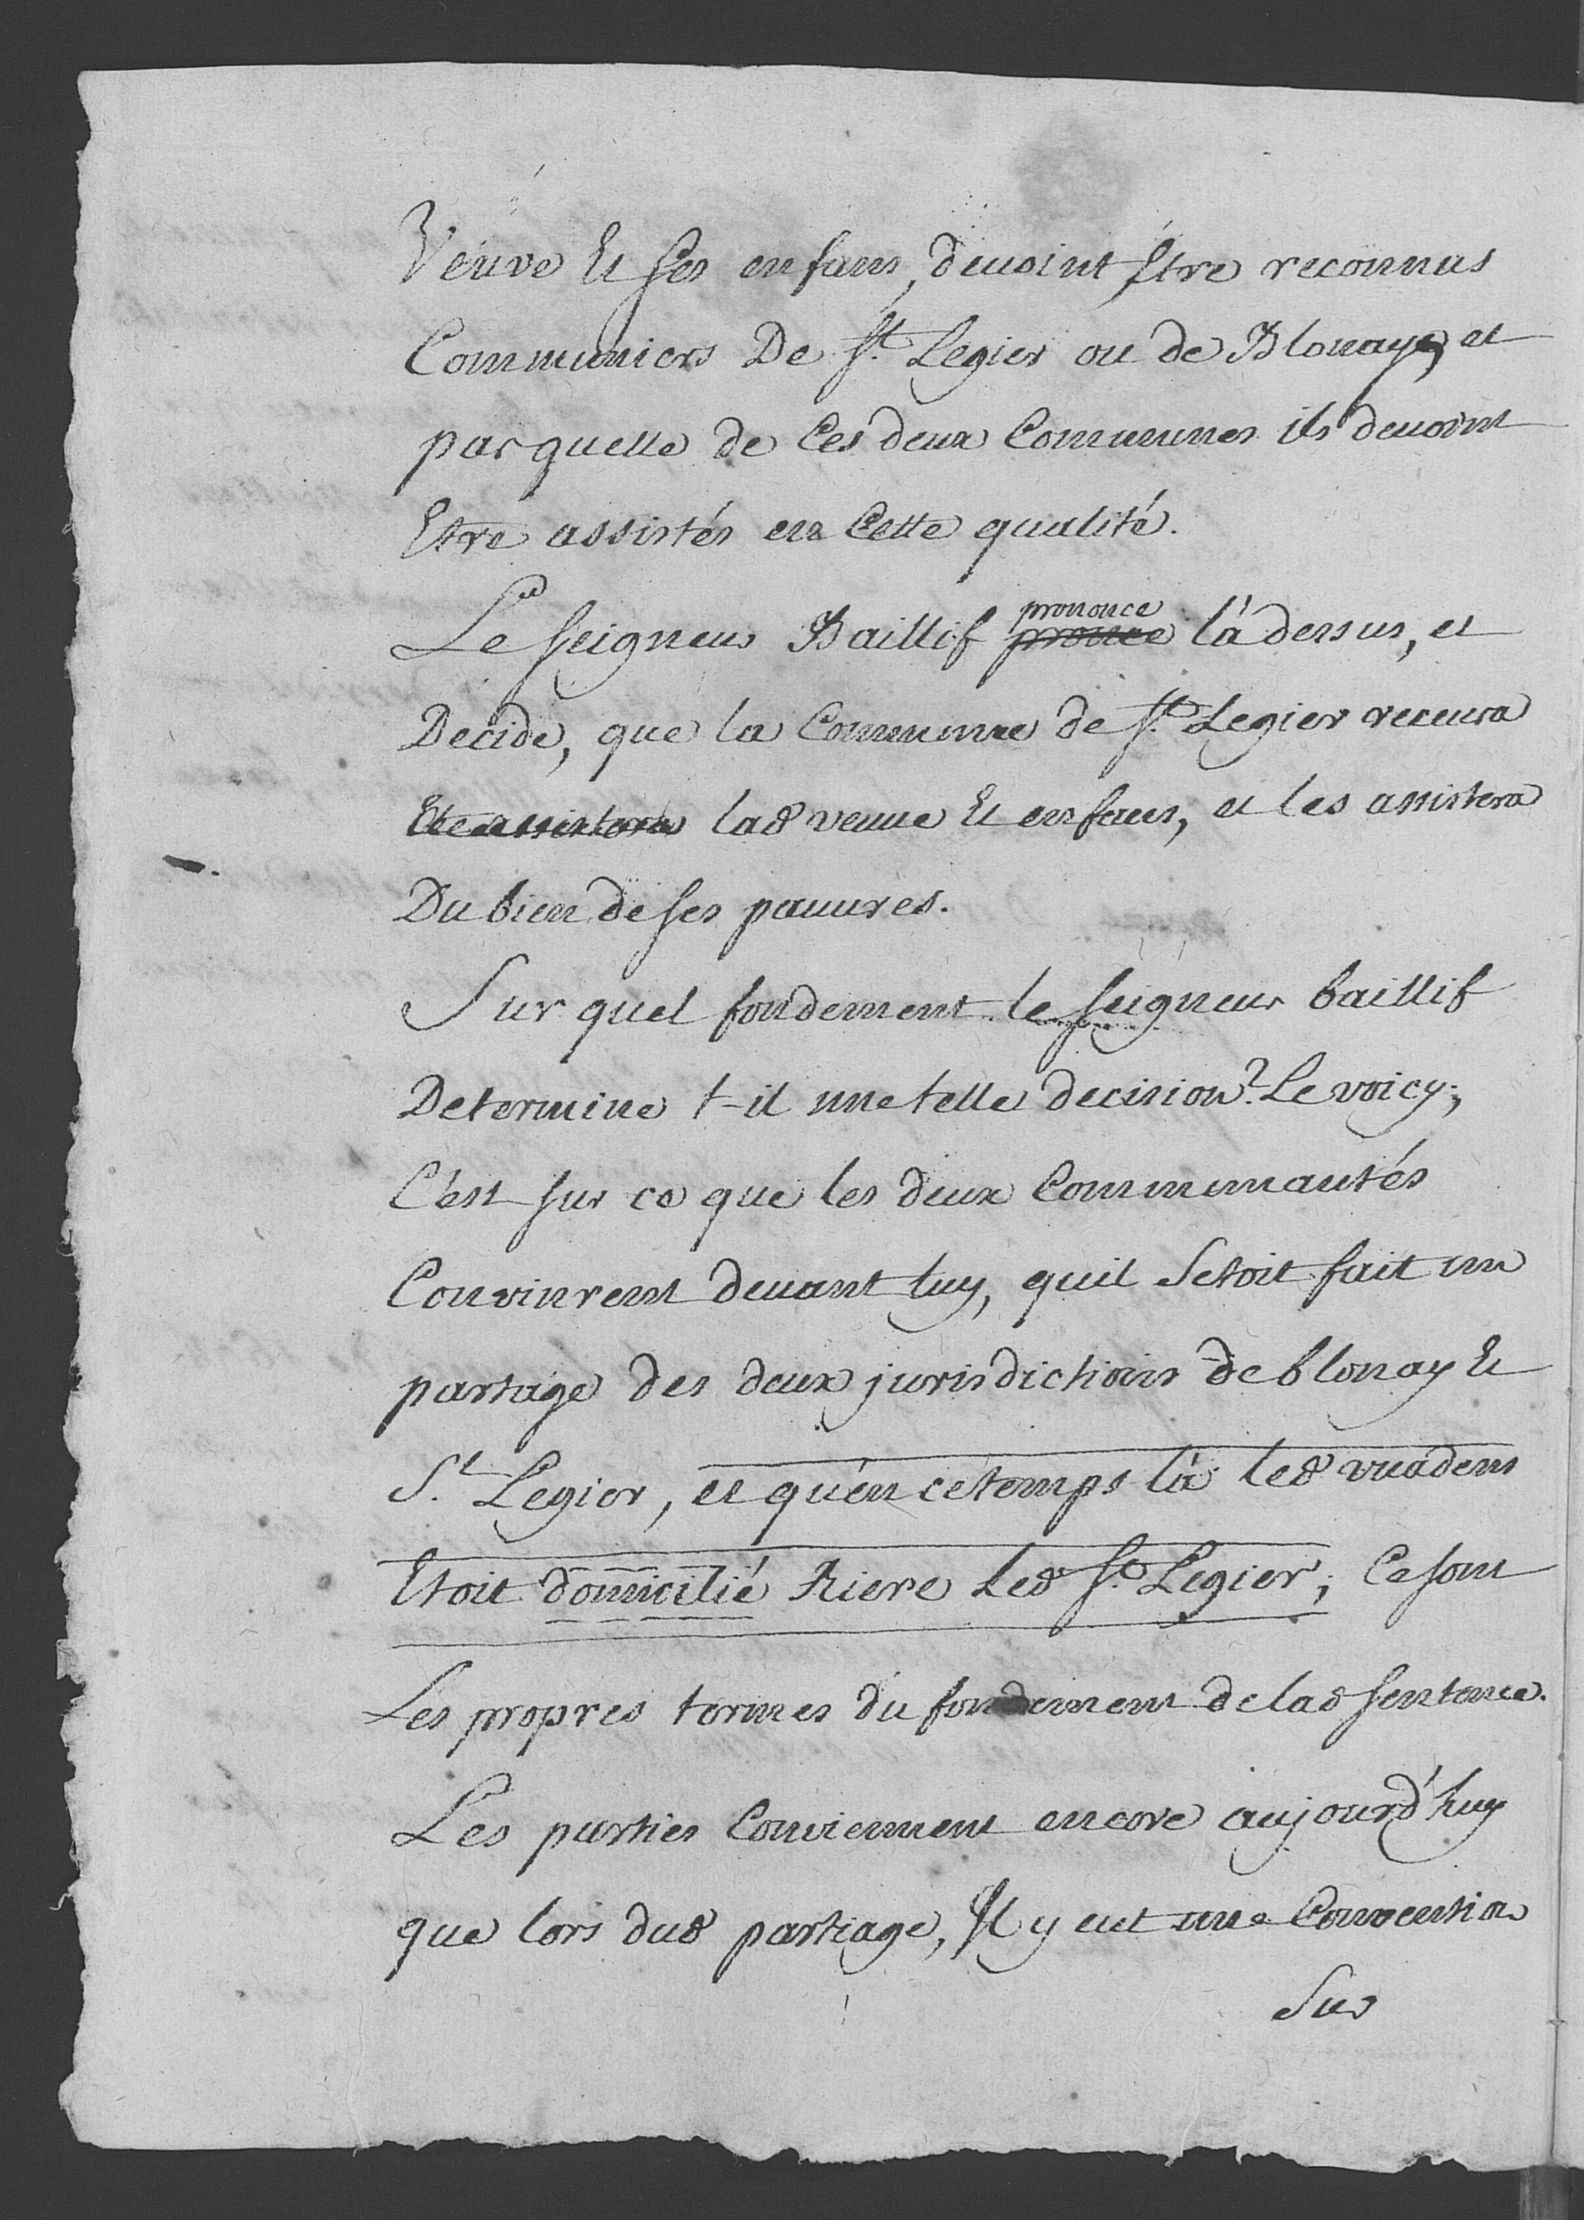 Véuve Et ses enfans, devoint Etre reconnus
Communiers De St. Legier ou de Blonay, et
par quelle de Ces deux Communes ils devoint
Etre assistés en Cette qualité.
prononce
Le seigneur Baillif pronce là dessus, et
Decide, que la Commune de St. Legier recevra
Et assistera lad veuve Et enfans, et les assistera
Du bien de ses pauvres.
Sur quel fondement le seigneur baillif
Determine t-il une telle decision? Le voicy;
C'est sur ce que les deux Communautés
Convinrent devant luy, quil Setoit fait un
partage des deux jurisdictions de blonay Et
St. Legier, et qu'en cetemps là led vuadens
Etoit domicilié Riere Led St. Legier; Ce sont
Les propres termes du fondement de lad sentence.
Les parties Conviennent encore aujourd'huy
que lors dud partage, Il y eut une Convention
Sur